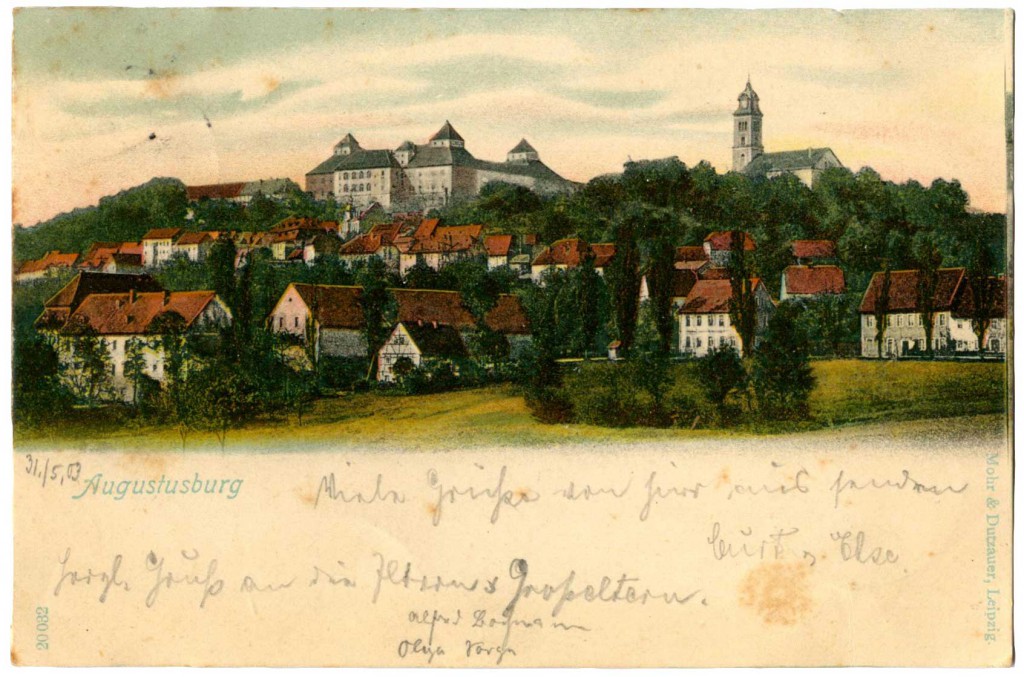 31./5.03
Augustusburg
Viele Grüße von hier aus senden
Curt u. Else.
Herzl. Gruß an die Eltern u Großeltern.
Alfred
Olga
20 032
Mohr & Dutzauer, Leipzig.